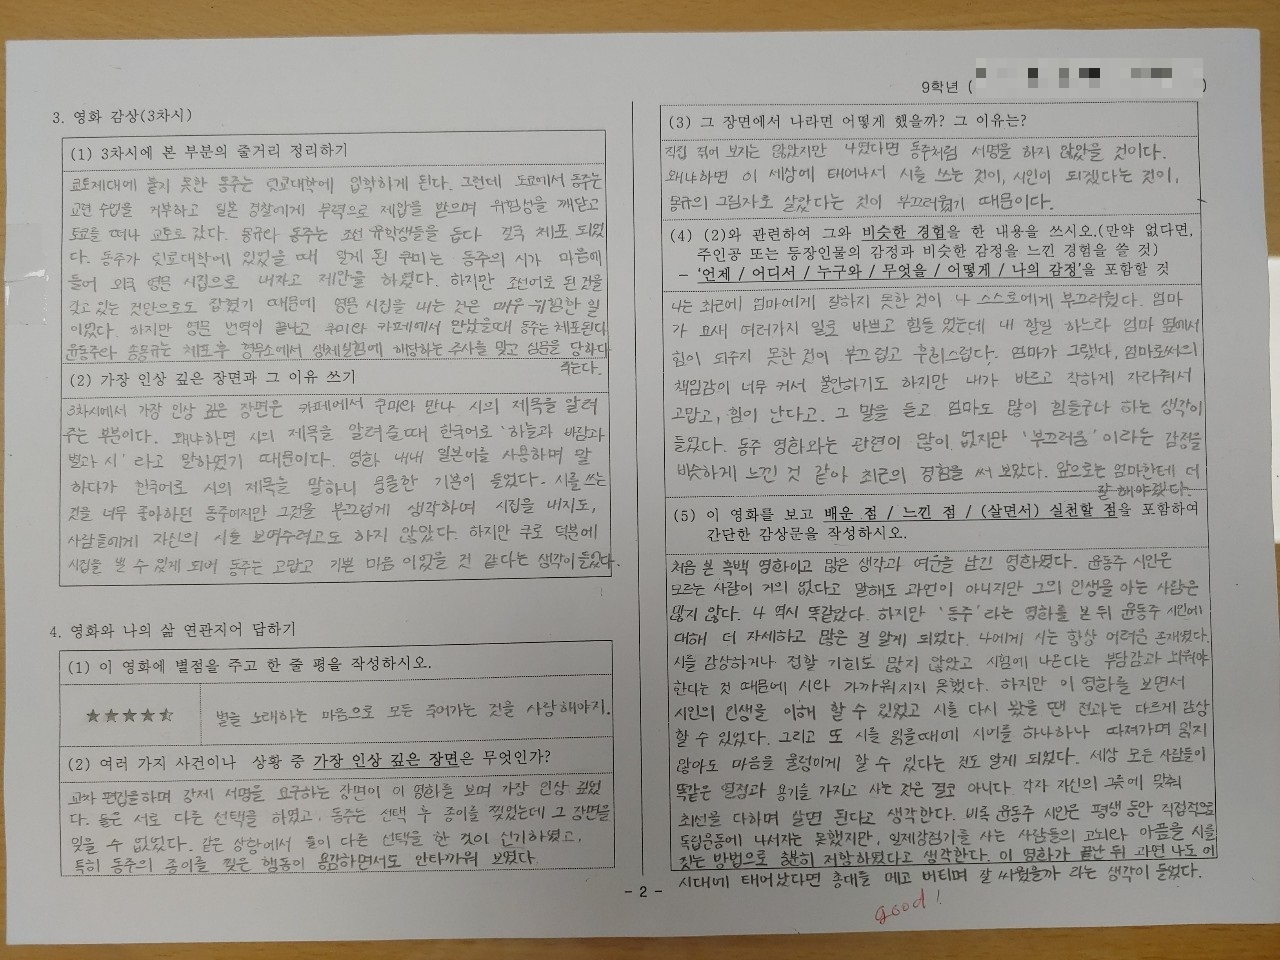 9학년 (
)
3. 영화 감상(3차시)
(1) 3차시에 본 부분의 줄거리 정리하기
교토제대에 붙지 못한 동주는 릿쿄대학에 입학하게 된다. 그런데 도쿄에서 동주는
교련 수업을 거부하고 일본 경찰에게 무력으로 제압을 받으며 위험성을 깨닫고
도쿄를 떠나 교토로 갔다. 몽규와 동주는 조선 유학생들을 돕다 결국 체포 되었
다. 동주가 릿쿄대학에 있었을 때 알게 된 쿠미는 동주의 시가 마음에
들어 영문 시집으로 내자고 제안을 하였다. 하지만 조선어로 된 것을
갖고 있는 것만으로도 잡혔기 때문에 영문 시집을 내는 것은 매우 위험한 일
이었다. 하지만 영문 번역이 끝나고 쿠미와 카페에서 만났을때 동주는 체포된다
윤동주와 송몽규는 체포 후 형무소에서 생체실험에 해당하는 주사를 맞고 심문을 당하다
죽는다.
(2) 가장 인상 깊은 장면과 그 이유 쓰기
3차시에서 가장 인상 깊은 장면은 카페에서 쿠미와 만나 시의 제목을 알려
주는 부분이다. 왜냐하면 시의 제목을 알려줄때 한국어로 '하늘과 바람과
별과 시' 라고 말하였기 때문이다. 영화 내내 일본어을 사용하며 말
하다가 한국어로 시의 제목을 말하니 뭉클한 기분이 들었다. 시를 쓰는
것을 너무 좋아하던 동주이지만 그것을 부끄럽게 생각하여 시집을 내지도,
사람들에게 자신의 시를 보여주려고도 하지 않았다. 하지만 쿠미 덕분에
시집을 낼 수 있게 되어 동주는 고맙고 기쁜 마음 이었을 것 같다는 생각이 들었다.
4. 영화와 나의 삶 연관지어 답하기
(1) 이 영화에 별점을 주고 한 줄 평을 작성하시오.
★★★★★
별을 노래하는 마음으로 모든 죽어가는 것을 사랑해야지.
(2) 여러 가지 사건이나 상황 중 가장 인상 깊은 장면은 무엇인가?
교차 편집을하며 강제 서명을 요구하는 장면이 이 영화를 보며 가장 인상 깊었
다. 둘은 서로 다른 선택을 하였고, 동주는 선택 후 종이를 찢었는데 그 장면을
잊을 수 없었다. 같은 상황에서 둘이 다른 선택을 한 것이 신기하였고,
특히 동주의 종이를 찢은 행동이 용감하면서도 안타까워 보였다.
(3) 그 장면에서 나라면 어떻게 했을까? 그 이유는?
직접 겪어 보지는 않았지만 나였다면 동주처럼 서명을 하지 않았을 것이다.
왜냐하면 이 세상에 태어나서 시를 쓰는 것이, 시인이 되겠다는 것이,
몽규의 그림자로 살았다는 것이 부끄러웠기 때문이다.
(4) (2)와 관련하여 그와 비슷한 경험을 한 내용을 쓰시오.(만약 없다면,
주인공 또는 등장인물의 감정과 비슷한 감정을 느낀 경험을 쓸 것)
– '언제 / 어디서 / 누구와 / 무엇을 / 어떻게 / 나의 감정'을 포함할 것
나는 최근에 엄마에게 잘하지 못한것이 나 스스로에게 부끄러웠다. 엄마
가 요새 여러가지 일로 바쁘고 힘들었는데 내 할일 하느라 엄마 옆에서
힘이 되주지 못한 것이 부끄럽고 후회스럽다. 엄마가 그랬다, 엄마로써의
책임감이 너무 커서 불안하기도 하지만 내가 바르고 착하게 자라줘서
고맙고, 힘이 난다고. 그 말을 듣고 엄마도 많이 힘들구나 하는 생각이
들었다. 동주 영화와는 관련이 많이 없지만 '부끄러움' 이라는 감정을
비슷하게 느낀 것 같아 최근의 경험을 써 보았다. 앞으로는 엄마한테 더
잘 해야겠다.
(5) 이 영화를 보고 배운 점 / 느낀 점 / (살면서) 실천할 점을 포함하여
간단한 감상문을 작성하시오.
처음 본 흑백 영화이고 많은 생각과 여운을 남긴 영화였다. 윤동주 시인은
모르는 사람이 거의 없다고 말해도 과언이 아니지만 그의 인생을 아는 사람은
많지 않다. 나 역시 똑같았다. 하지만 '동주' 라는 영화를 본 뒤 윤동주 시인에
대해 더 자세하고 많은 걸 알게 되었다. 나에게 시는 항상 어려운 존재였다.
시를 감상하거나 접할 기회도 많지 않았고 시험에 나온다는 부담감과 외워야
한다는 것 때문에 시와 가까워지지 못했다. 하지만 이 영화를 보면서
시인의 인생을 이해 할 수 있었고 시를 다시 봤을 땐 전과는 다르게 감상
할 수 있었다. 그리고 또 시를 읽을때에 시어를 하나하나 따져가며 읽지
않아도 마음을 울렁이게 할 수 있다는 것도 알게 되었다. 세상 모든 사람들이
똑같은 열정과 용기를 가지고 사는 것은 결코 아니다. 각자 자신의 그릇에 맞춰
최선을 다하며 살면 된다고 생각한다. 비록 윤동주 시인은 평생 동안 직접적으로
독립운동에 나서지는 못했지만, 일제강점기를 사는 사람들의 고뇌와 아픔을 시를
짓는 방법으로 저항하였다고 생각한다. 이 영화가 끝난 뒤 과연 나도 이
시대에 태어났다면 총대를 메고 버티며 잘 싸웠을까 라는 생각이 들었다.
good!
- 2 -